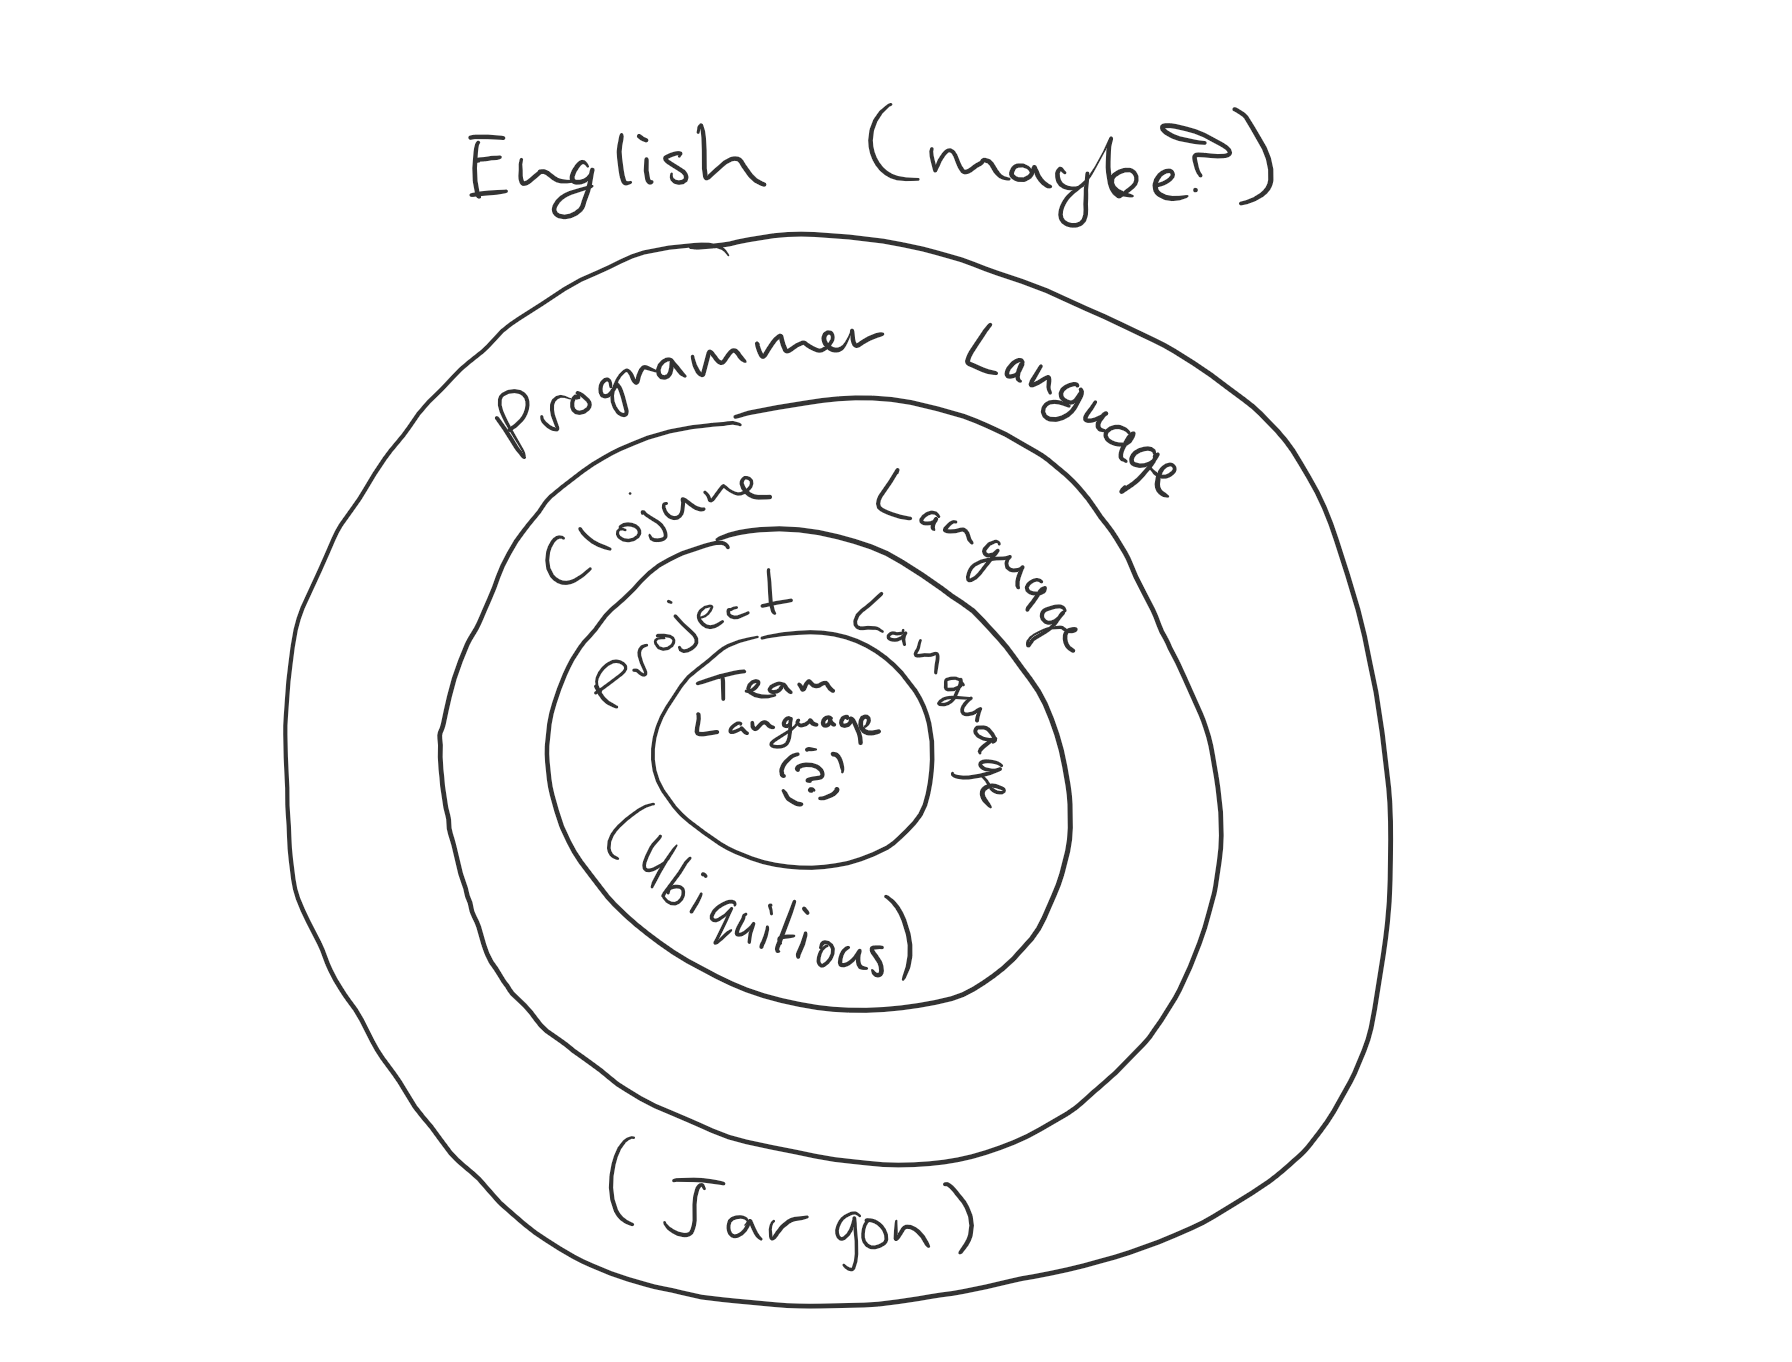 English (maybe?)
Programmer Language
Clojure Language
Project Language
Team
Language
?
(Ubiquitious)
(Jargon)